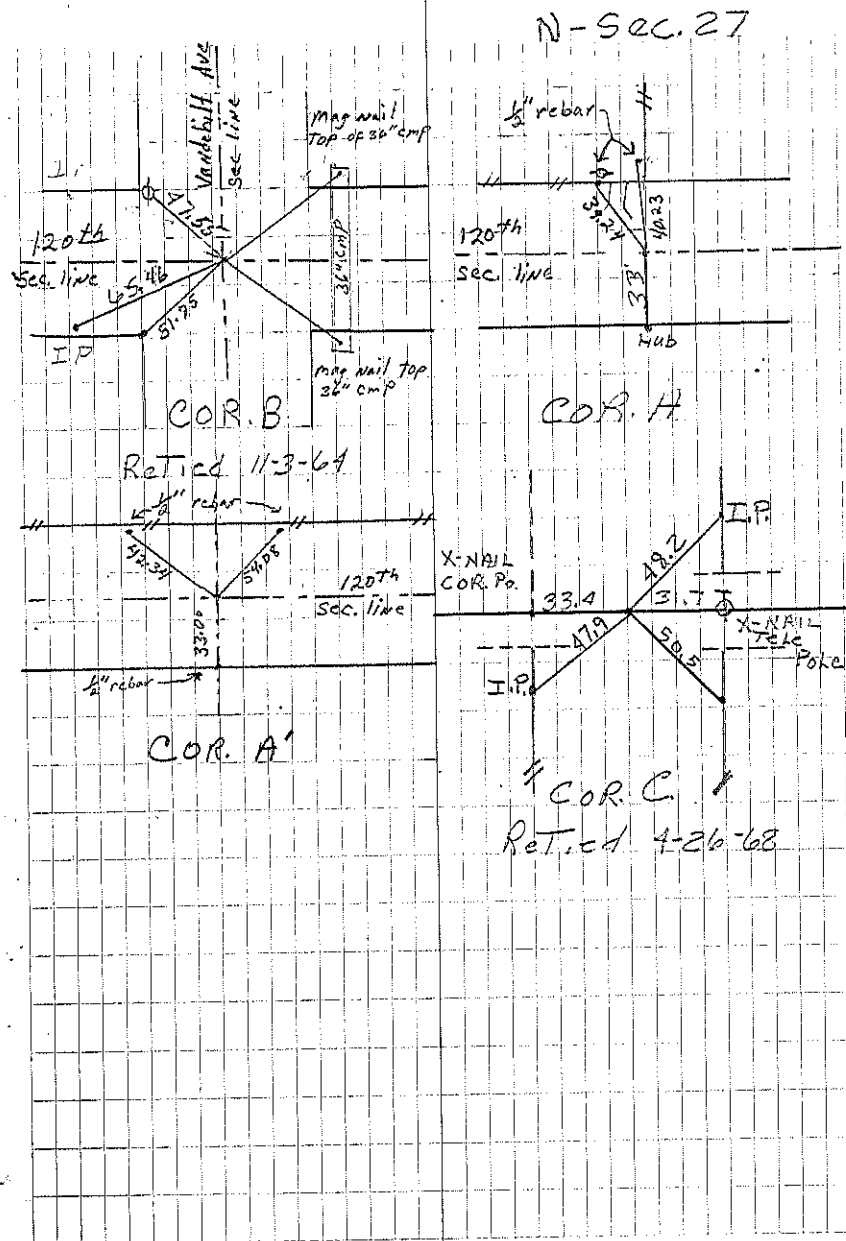 N-Sec. 27
Vandebilt Ave
Sec line
Mag nail
Top of 36" cmp
I.
47.59
120th
Sec. line
65.46
51.75
36" cmp
I.P
Mag nail top
36" cmp
COR. B
ReTied 11-3-64
1/2" rebar
42.34
54.08
120th
Sec. line
33.00
1/2" rebar
COR. A'
1/2" rebar
39.24
40.23
120th
Sec. line
33'
Hub
COR. H
I.P.
X-NAIL
COR. Po.
48.2
33.4
31.7
X-NAIL
TELE
POLE
47.9
50.5
I.P.
COR. C.
ReTied 4-26-68